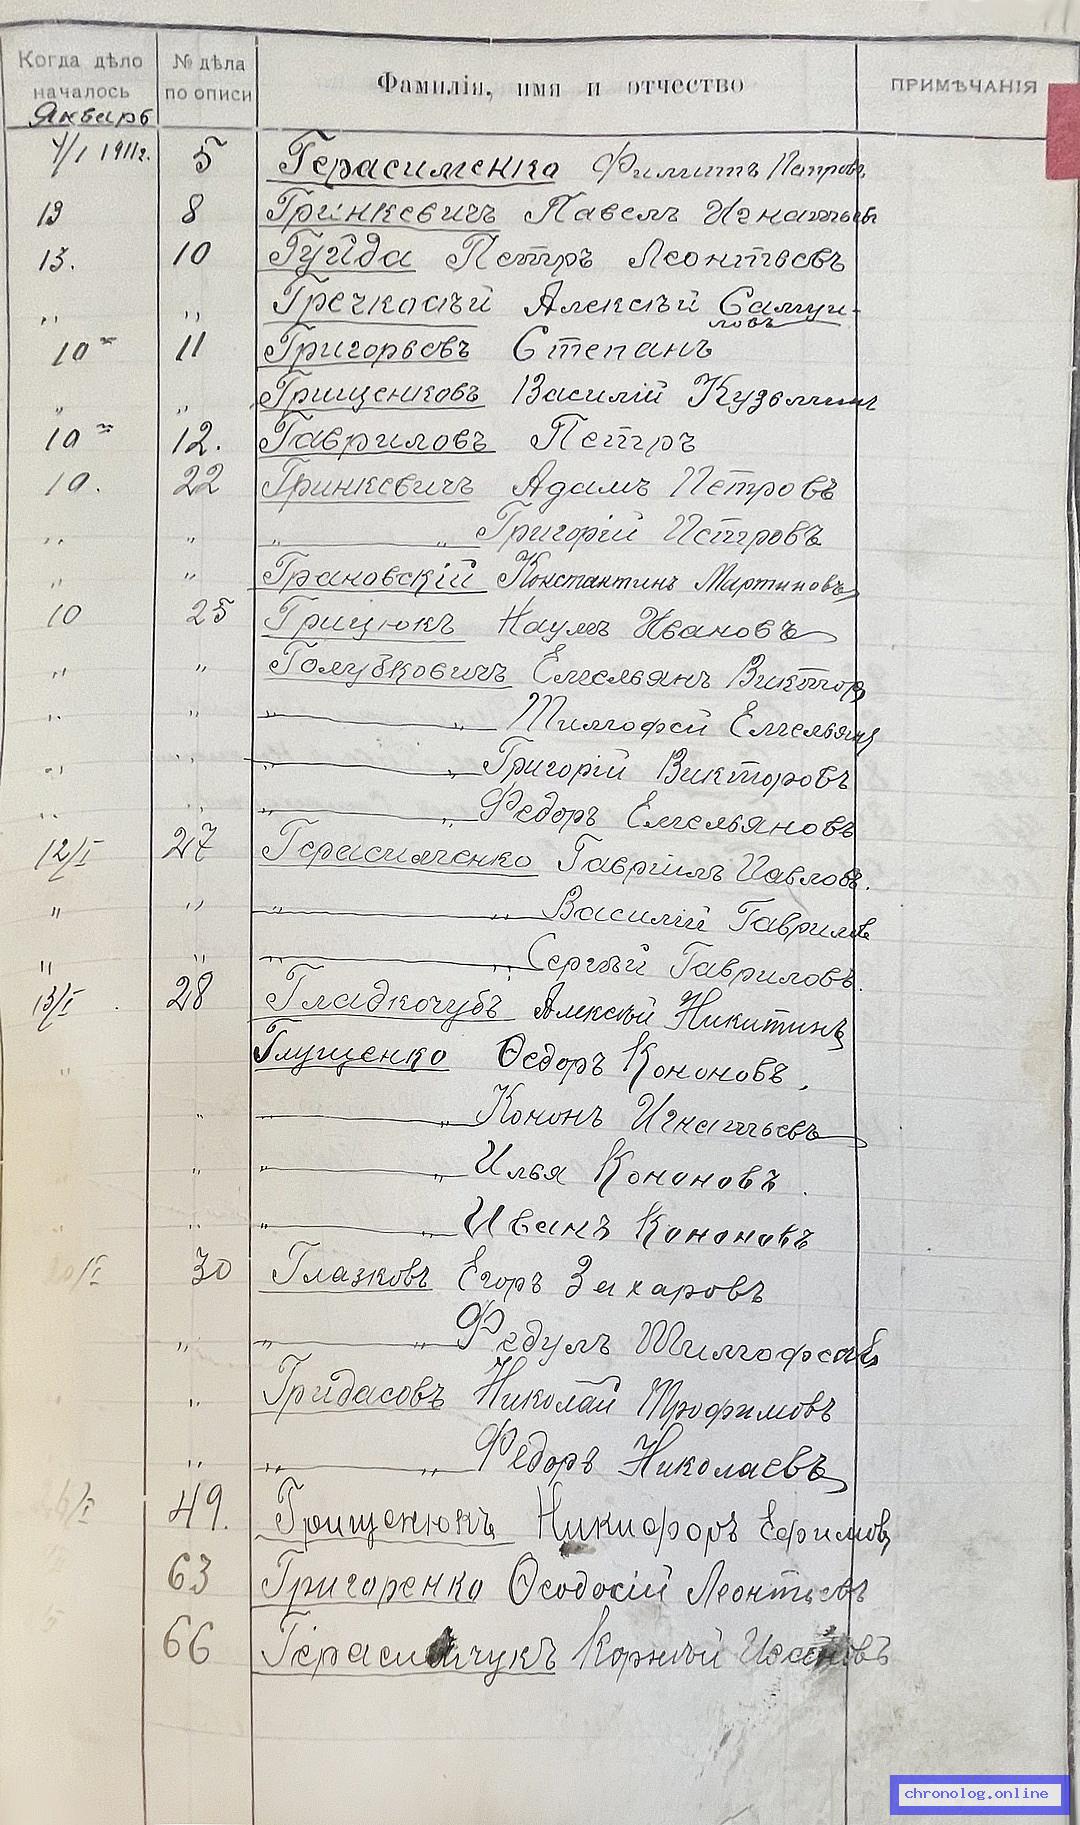 Когда дѣло началось № дѣла по описи Фамилія, имя и отчество ПРИМѢЧАНІЯ
Январь
4/I 1911г. 5 Герасименко Филиппъ Петровъ
13 8 Гринкевичъ Павелъ Игнатьевъ
13. 10 Гуйда Петръ Леонтьевъ
„ „ Гречкосѣй Алексѣй Самуи-
ловъ
10 11 Григорьевъ Степанъ
„ „ Грищенковъ Василій Кузьминъ
10 12. Гавриловъ Петръ
10. 22 Гринкевичъ Адамъ Петровъ
„ „ „ „ Григорій Петровъ
„ „ Грановскій Константинъ Мартиновъ
10 25 Грицюкъ Наумъ Ивановъ
„ „ Голубковичъ Емельянъ Викторов
„ „ „ „ Тимофей Емельянов
„ „ „ „ Григорій Викторовъ
„ „ „ „ Федоръ Емельяновъ
12/I 27 Герасименко Гавріилъ Павловъ.
„ „ „ „ Василій Гаврилов
„ „ „ „ Сергѣй Гавриловъ.
13/I 28 Гладкочубъ Алексѣй Никитинъ
„ Глущенко Ѳедоръ Кононовъ
„ „ „ Кононъ Игнатьевъ
„ „ „ Илья Кононовъ
„ „ „ „ Иванъ Кононовъ
/I 30 Глазковъ Егоръ Захаровъ
„ „ „ Федулъ Тимофеев
„ Гридасовъ Николай Трофимовъ
„ „ „ Федоръ Николаевъ
/I 49. Грищенюкъ Никифоръ Ефимов
63 Григоренко Ѳеодосій Леонтьевъ
66 Герасимчукъ Корнѣй Ивановъ
chronolog.online